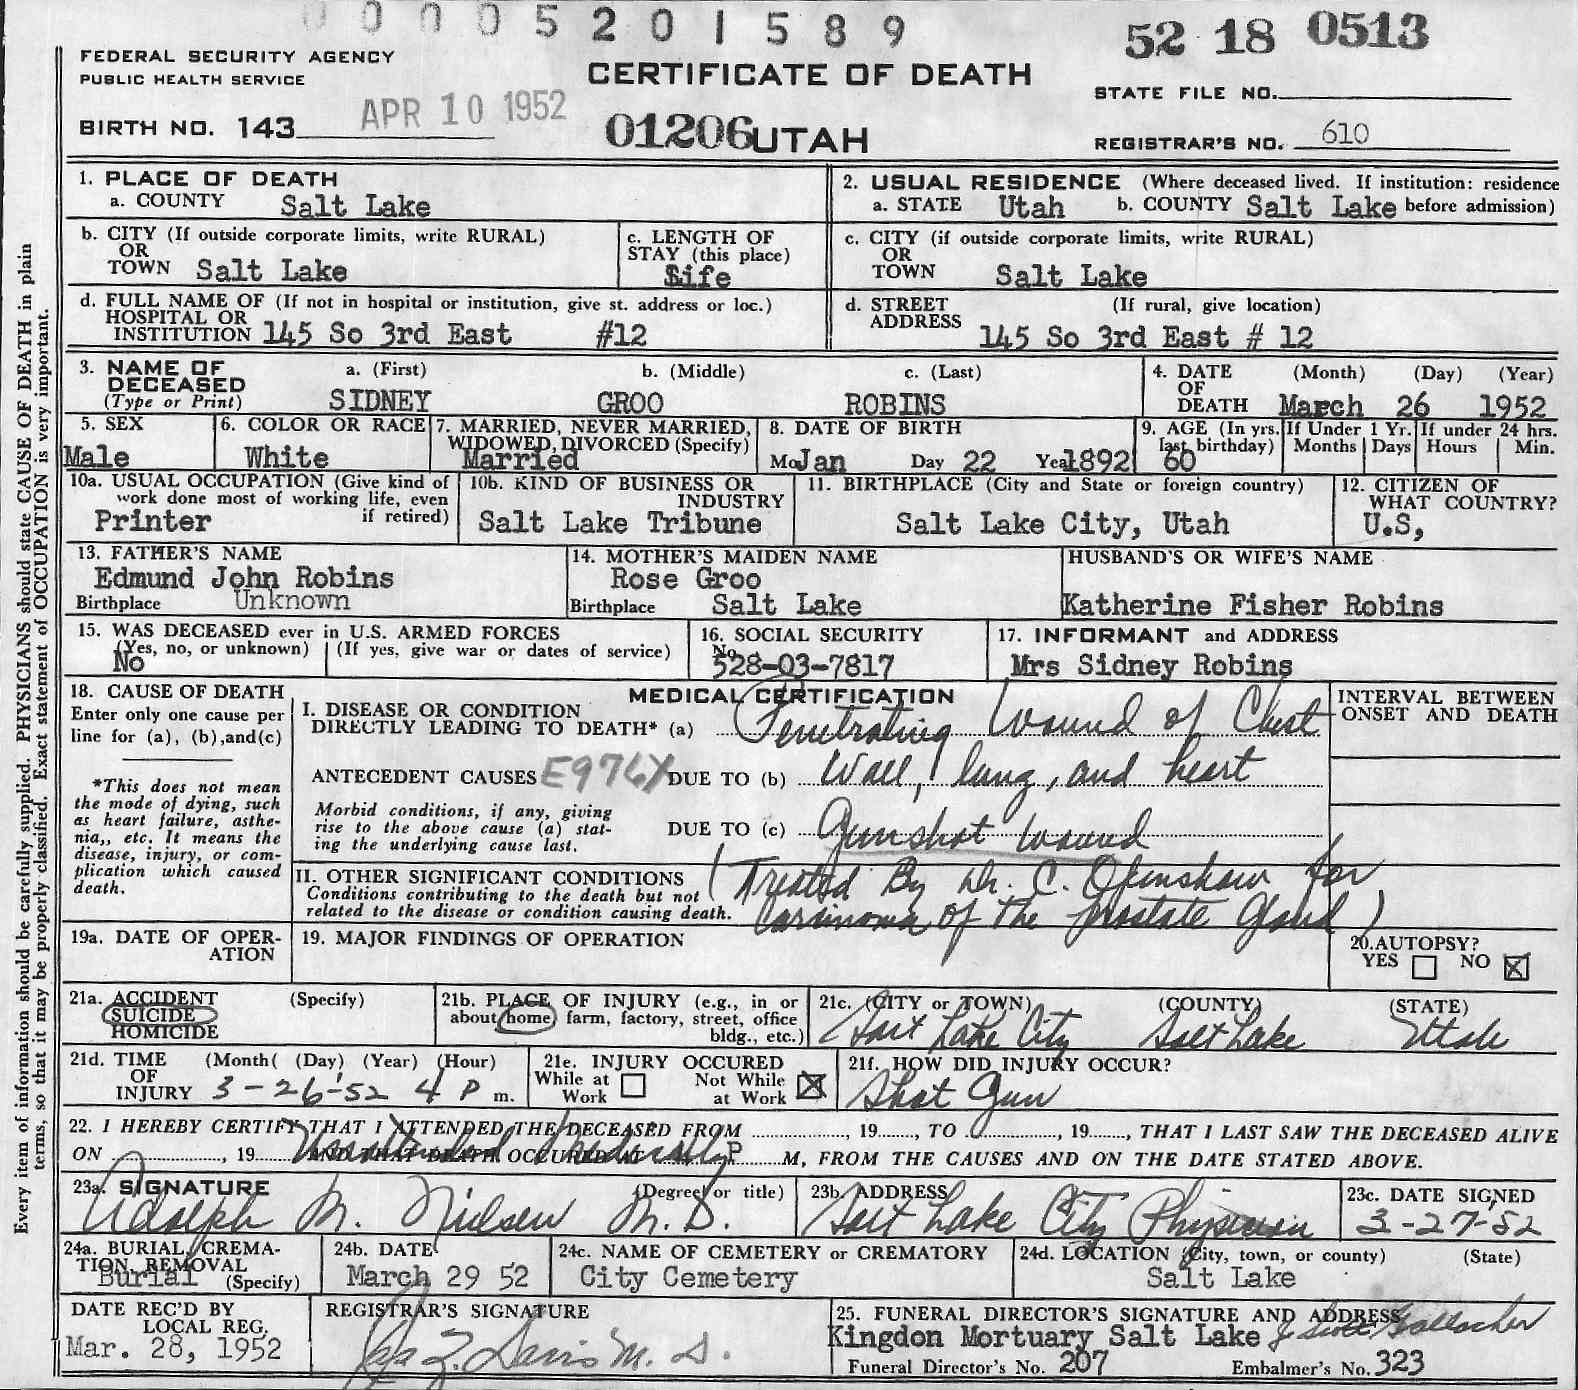 0 0 0 5 2 0 1 5 8 9
52 18 0513
FEDERAL SECURITY AGENCY
PUBLIC HEALTH SERVICE
CERTIFICATE OF DEATH
STATE FILE NO.
APR 10 1952
BIRTH NO. 143
01206 UTAH
REGISTRAR'S NO. 610
Every item of information should be carefully supplied. PHYSICIANS should state CAUSE OF DEATH in plain
terms, so that it may be properly classified. Exact statement of OCCUPATION is very important.
1. PLACE OF DEATH
a. COUNTY Salt Lake
2. USUAL RESIDENCE (Where deceased lived. If institution: residence
a. STATE Utah b. COUNTY Salt Lake before admission)
b. CITY (If outside corporate limits, write RURAL)
OR
TOWN Salt Lake
c. LENGTH OF
STAY (this place)
Life
c. CITY (if outside corporate limits, write RURAL)
OR
TOWN Salt Lake
d. FULL NAME OF (If not in hospital or institution, give st. address or loc.)
HOSPITAL OR
INSTITUTION 145 So 3rd East #12
d. STREET (If rural, give location)
ADDRESS
145 So 3rd East # 12
3. NAME OF
DECEASED
(Type or Print)
a. (First) b. (Middle) c. (Last)
SIDNEY GROO ROBINS
4. DATE (Month) (Day) (Year)
OF
DEATH March 26 1952
5. SEX
Male
6. COLOR OR RACE
White
7. MARRIED, NEVER MARRIED,
WIDOWED, DIVORCED (Specify)
Married
8. DATE OF BIRTH
Mo Jan Day 22 Year 1892
9. AGE (In yrs.
last birthday)
60
If Under 1 Yr.
Months Days
If under 24 hrs.
Hours Min.
10a. USUAL OCCUPATION (Give kind of
work done most of working life, even
if retired)
Printer
10b. KIND OF BUSINESS OR
INDUSTRY
Salt Lake Tribune
11. BIRTHPLACE (City and State or foreign country)
Salt Lake City, Utah
12. CITIZEN OF
WHAT COUNTRY?
U.S,
13. FATHER'S NAME
Edmund John Robins
Birthplace Unknown
14. MOTHER'S MAIDEN NAME
Rose Groo
Birthplace Salt Lake
HUSBAND'S OR WIFE'S NAME
Katherine Fisher Robins
15. WAS DECEASED ever in U.S. ARMED FORCES
(Yes, no, or unknown) (If yes, give war or dates of service)
No
16. SOCIAL SECURITY
No.
528-03-7817
17. INFORMANT and ADDRESS
Mrs Sidney Robins
18. CAUSE OF DEATH
Enter only one cause per
line for (a), (b),and(c)
*This does not mean
the mode of dying, such
as heart failure, asthe-
nia,, etc. It means the
disease, injury, or com-
plication which caused
death.
MEDICAL CERTIFICATION
I. DISEASE OR CONDITION
DIRECTLY LEADING TO DEATH* (a) Penetrating Wound of Chest
ANTECEDENT CAUSES E976X DUE TO (b) Wall, lung, and heart
Morbid conditions, if any, giving
rise to the above cause (a) stat-
ing the underlying cause last.
DUE TO (c) Gunshot wound
INTERVAL BETWEEN
ONSET AND DEATH
II. OTHER SIGNIFICANT CONDITIONS
Conditions contributing to the death but not
related to the disease or condition causing death.
(Treated By Dr. C. Openshaw for
Carcinoma of the prostate Gland)
19a. DATE OF OPER-
ATION
19. MAJOR FINDINGS OF OPERATION
20. AUTOPSY?
YES NO
21a. ACCIDENT (Specify)
SUICIDE
HOMICIDE
21b. PLACE OF INJURY (e.g., in or
about home, farm, factory, street, office
bldg., etc.)
21c. (CITY or TOWN) (COUNTY) (STATE)
Salt Lake City Salt Lake Utah
21d. TIME (Month( (Day) (Year) (Hour)
OF
INJURY 3-26-52 4 P m.
21e. INJURY OCCURED
While at
Work
Not While
at Work
21f. HOW DID INJURY OCCUR?
Shot Gun
22. I HEREBY CERTIFY THAT I ATTENDED THE DECEASED FROM , 19 , TO , 19 , THAT I LAST SAW THE DECEASED ALIVE
ON , 19 AND THAT DEATH OCCURED AT P M, FROM THE CAUSES AND ON THE DATE STATED ABOVE.
23a. SIGNATURE (Degree or title)
Adolph M. Nielsen M.D.
23b. ADDRESS
Salt Lake City Physician
23c. DATE SIGNED
3-27-52
24a. BURIAL, CREMA-
TION, REMOVAL
Burial (Specify)
24b. DATE
March 29 52
24c. NAME OF CEMETERY or CREMATORY
City Cemetery
24d. LOCATION (City, town, or county) (State)
Salt Lake
DATE REC'D BY
LOCAL REG.
Mar. 28, 1952
REGISTRAR'S SIGNATURE
Davis M. D.
25. FUNERAL DIRECTOR'S SIGNATURE AND ADDRESS
Kingdon Mortuary Salt Lake J Scott Gallacher
Funeral Director's No. 207 Embalmer's No. 323